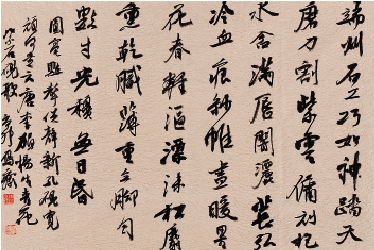 端州石工巧如神踏天
磨刀割紫雲傭刓抱
水含滿唇闇灑萇弘
冷血痕紗帷晝暖墨
花春輕漚漂沫松麝
薰乾膩薄重立脚匀
數寸光穐無日昏
圓毫促點聲靜新孔硯寬
頑何足云唐李賀楊生青花
紫石硯歌